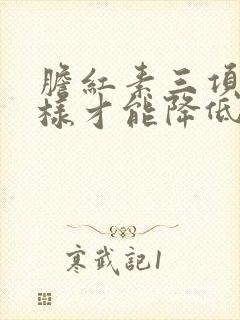 膽紅素三項
樣才能降低
寒武記1